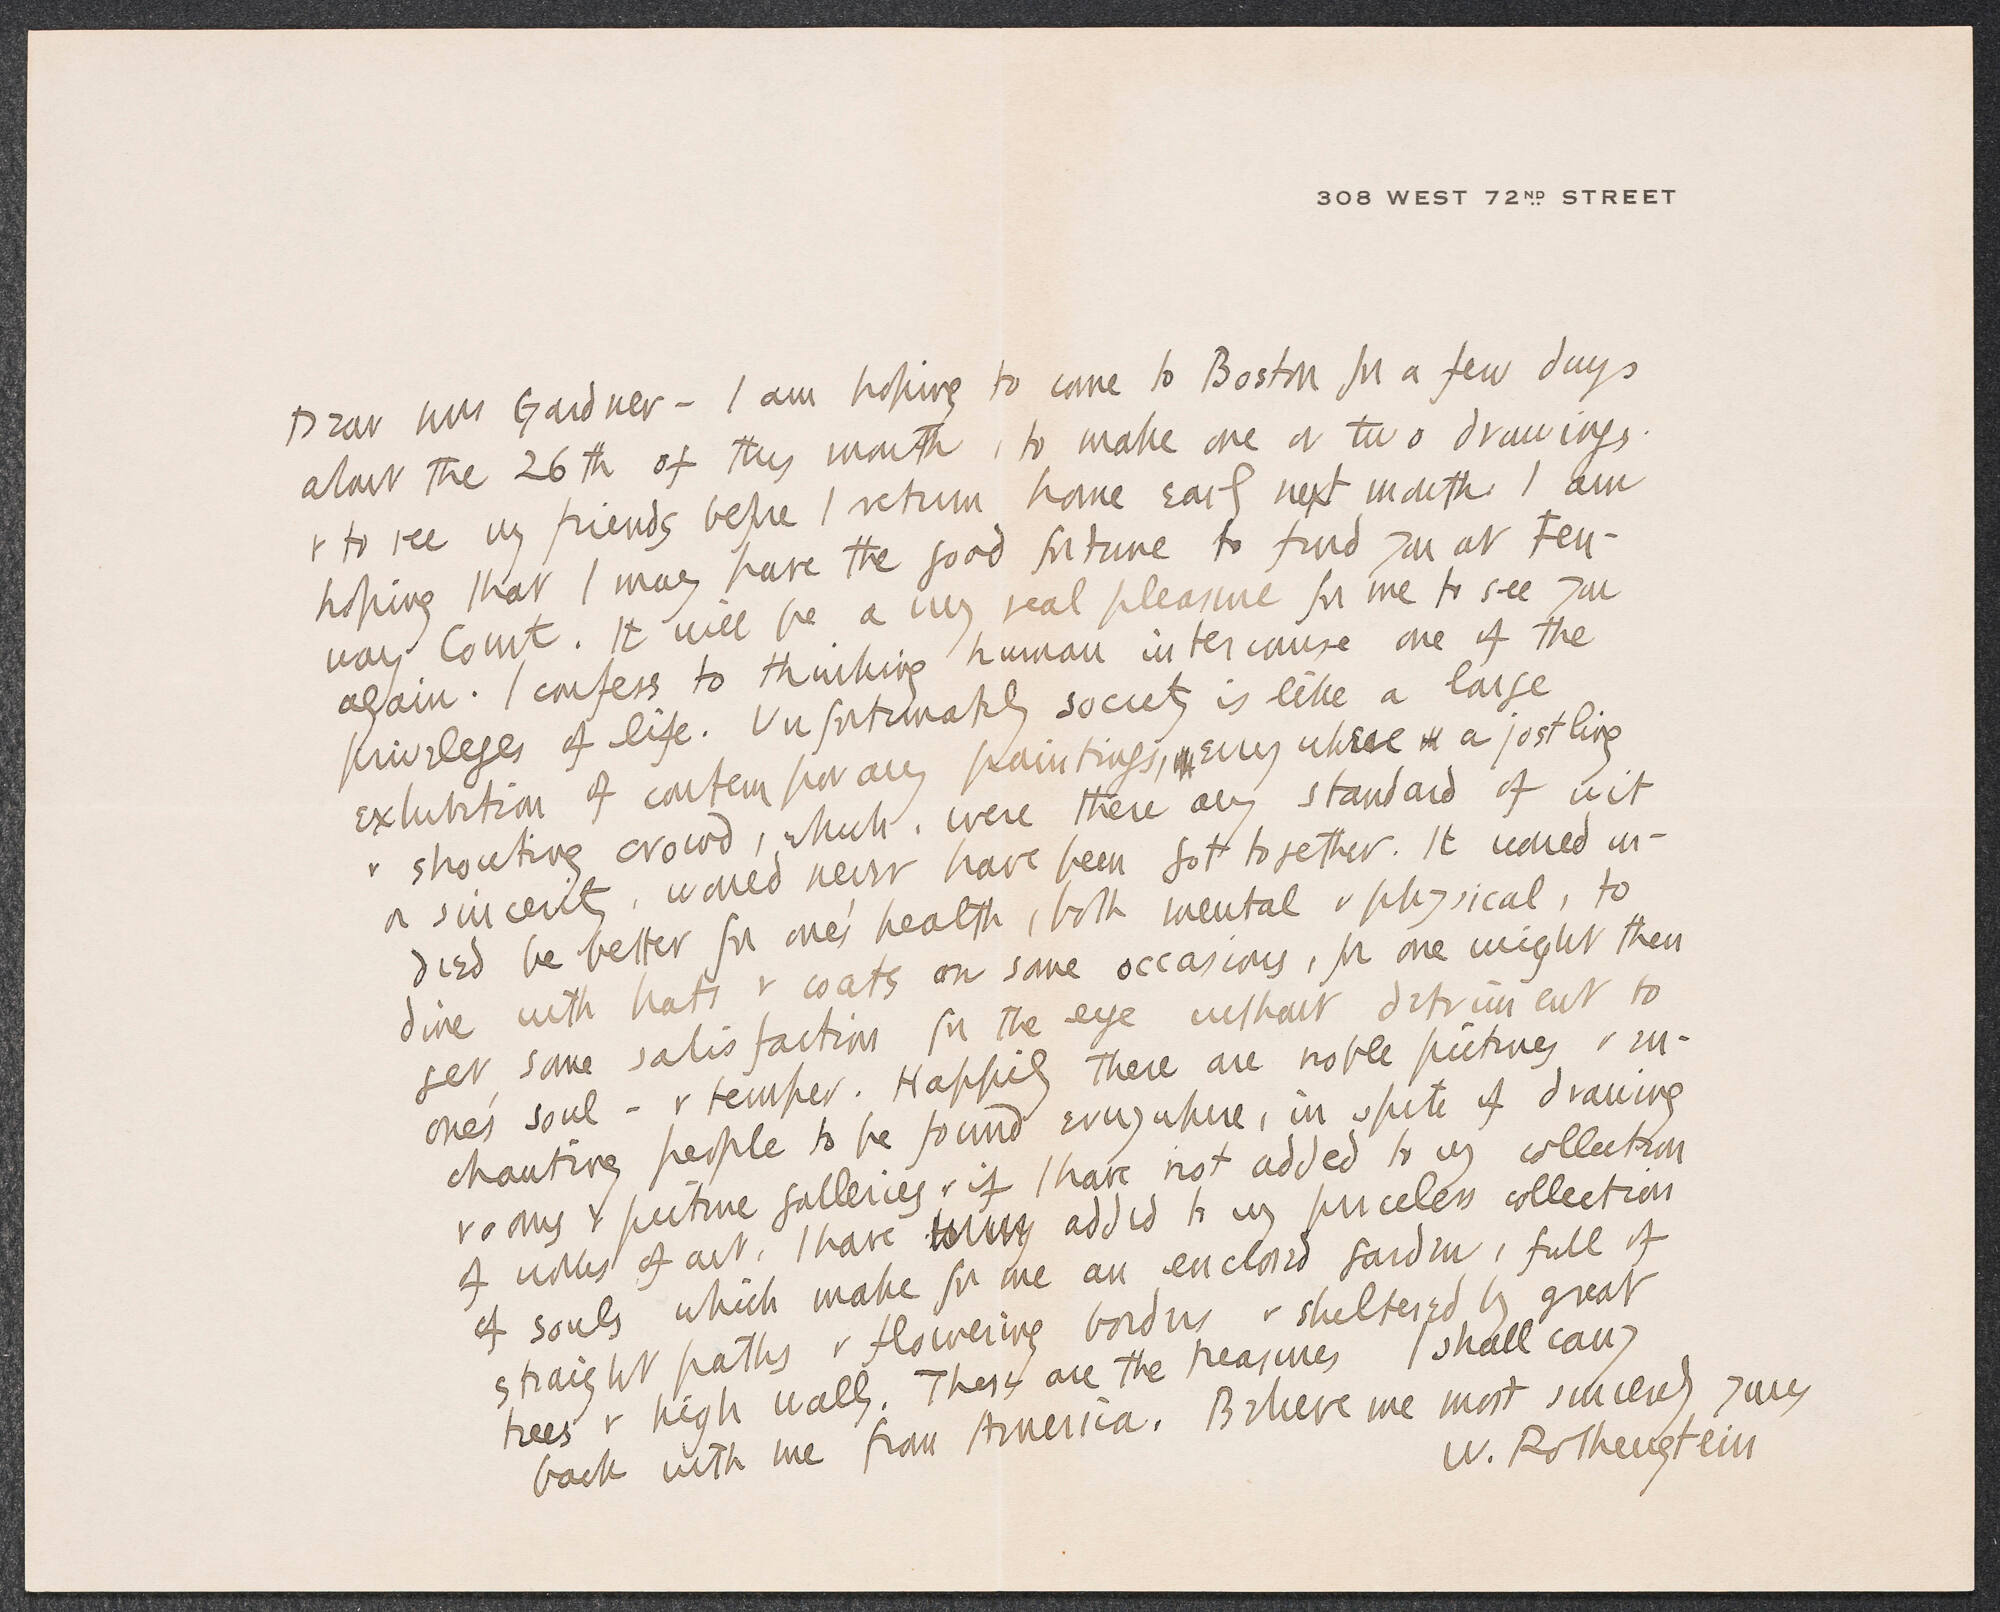 308 WEST 72ND STREET
Dear Mrs Gardner - I am hoping to come to Boston for a few days
about the 26th of this month, to make one or two drawings.
& to see my friends before I return home early next month. I am
hoping that I may have the good fortune to find you at Fen-
way Court. It will be a very real pleasure for me to see you
again. I confess to thinking human intercourse one of the
privileges of life. Unfortunately society is like a large
exhibition of contemporary paintings, everywhere a jostling
& shouting crowd, which, were there any standard of wit
or sincerity, would never have been got together. It would in-
died be better for one's health, both mental & physical, to
dine with hats & coats on some occasions, for one might then
get some satisfaction for the eye without detriment to
one's soul - & temper. Happily there are noble pictures & en-
chanting people to be found everywhere, in spite of drawing
rooms & picture galleries & if I have not added to my collection
of works of art, I have added to my priceless collection
of souls which make for me an enclosed garden, full of
straight paths & flowering borders & sheltered by great
trees & high walls. These are the treasures I shall carry
back with me from America. Believe me most sincerely yours
W. Rothenstein